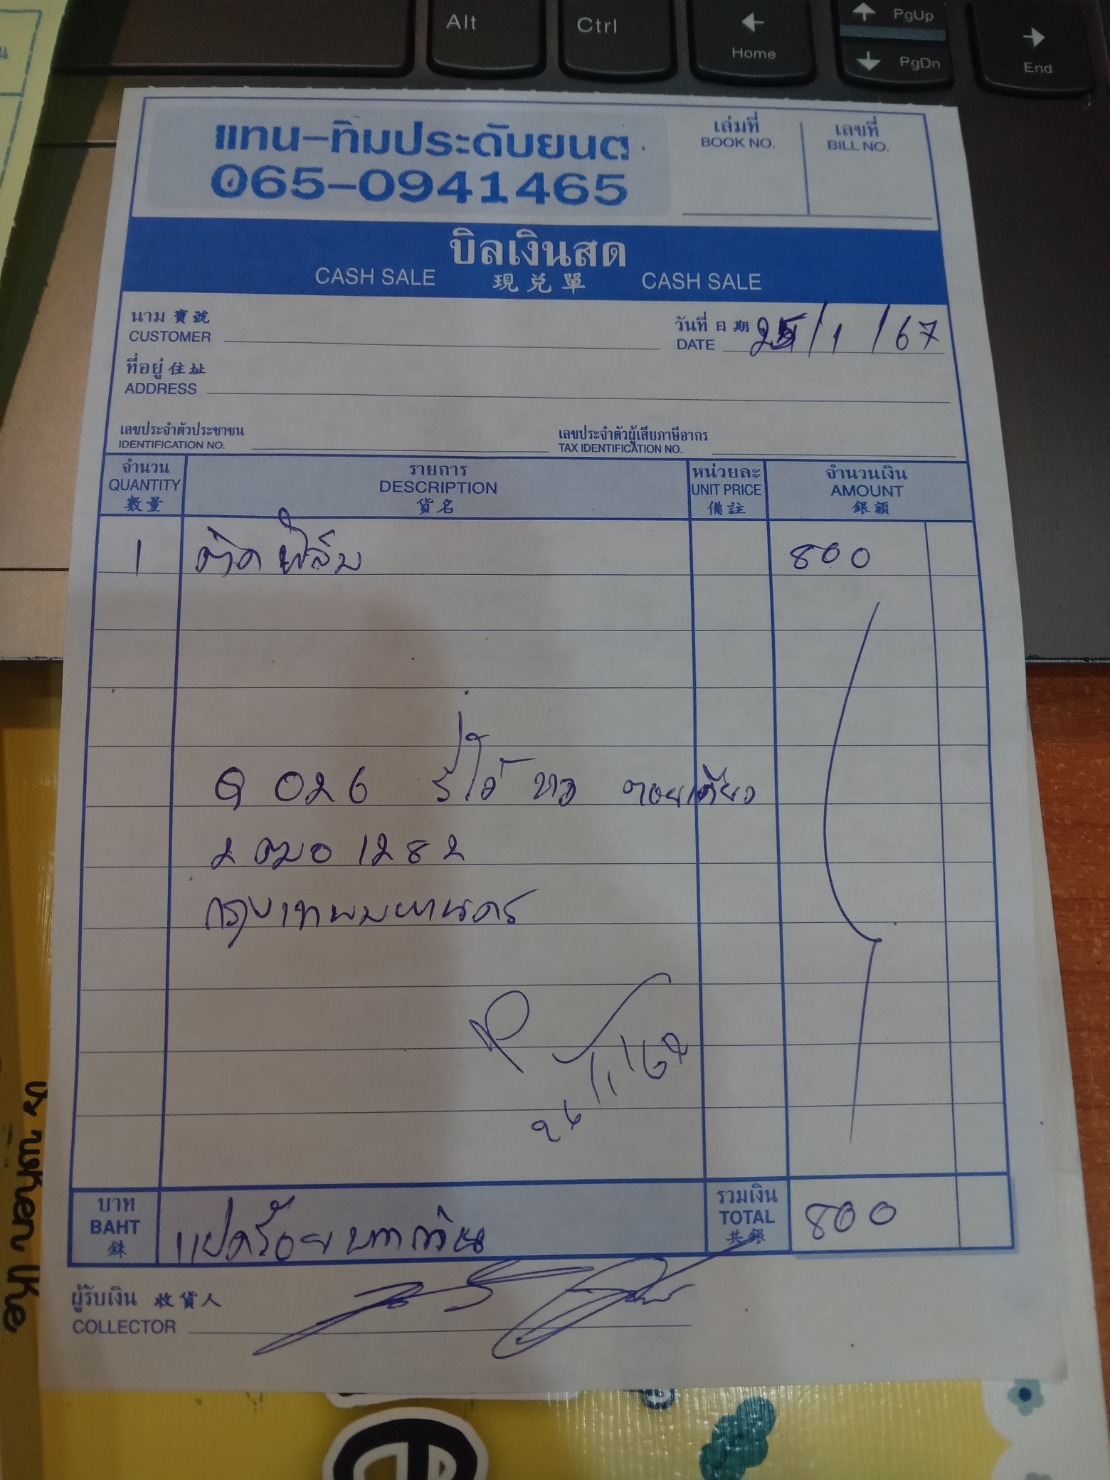 Alt
Ctrl
Home
PgUp
PgDn
End
แทน-ทิมประดับยนต์
065-0941465
เล่มที่
BOOK NO.
เลขที่
BILL NO.
บิลเงินสด
CASH SALE 現兌單 CASH SALE
นาม 寶號
CUSTOMER
วันที่ 日期
DATE 25/1/67
ที่อยู่ 住址
ADDRESS
เลขประจำตัวประชาชน
IDENTIFICATION NO.
เลขประจำตัวผู้เสียภาษีอากร
TAX IDENTIFICATION NO.
จำนวน รายการ หน่วยละ จำนวนเงิน
QUANTITY DESCRIPTION UNIT PRICE AMOUNT
數量 貨名 備註 銀額
1 ติดฟิล์ม 800
026
2ฒอ 1282
กรุงเทพมหานคร
26/1/67
บาท
BAHT
銖
แปดร้อยบาทถ้วน
รวมเงิน
TOTAL
共銀
800
ผู้รับเงิน 收貨人
COLLECTOR